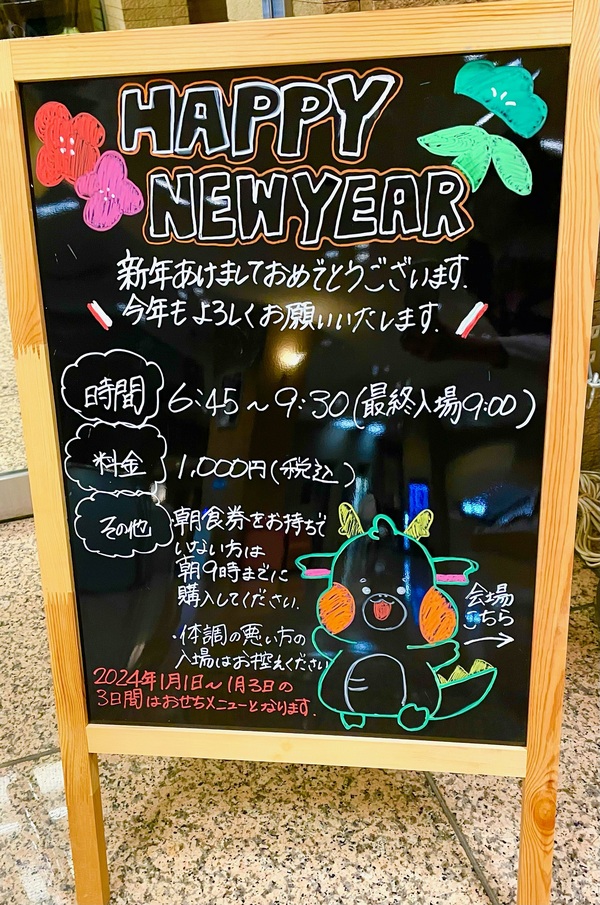 HAPPY
NEW YEAR
新年あけましておめでとうございます.
今年もよろしくお願いいたします.
時間 6:45~9:30(最終入場9:00)
料金 1,000円(税込)
その他 朝食券をお持ちで
いない方は
朝9時までに
購入してください.
・体調の悪い方の
入場はお控えください
会場
こちら
→
2024年1月1日~1月3日の
3日間はおせちメニューとなります.